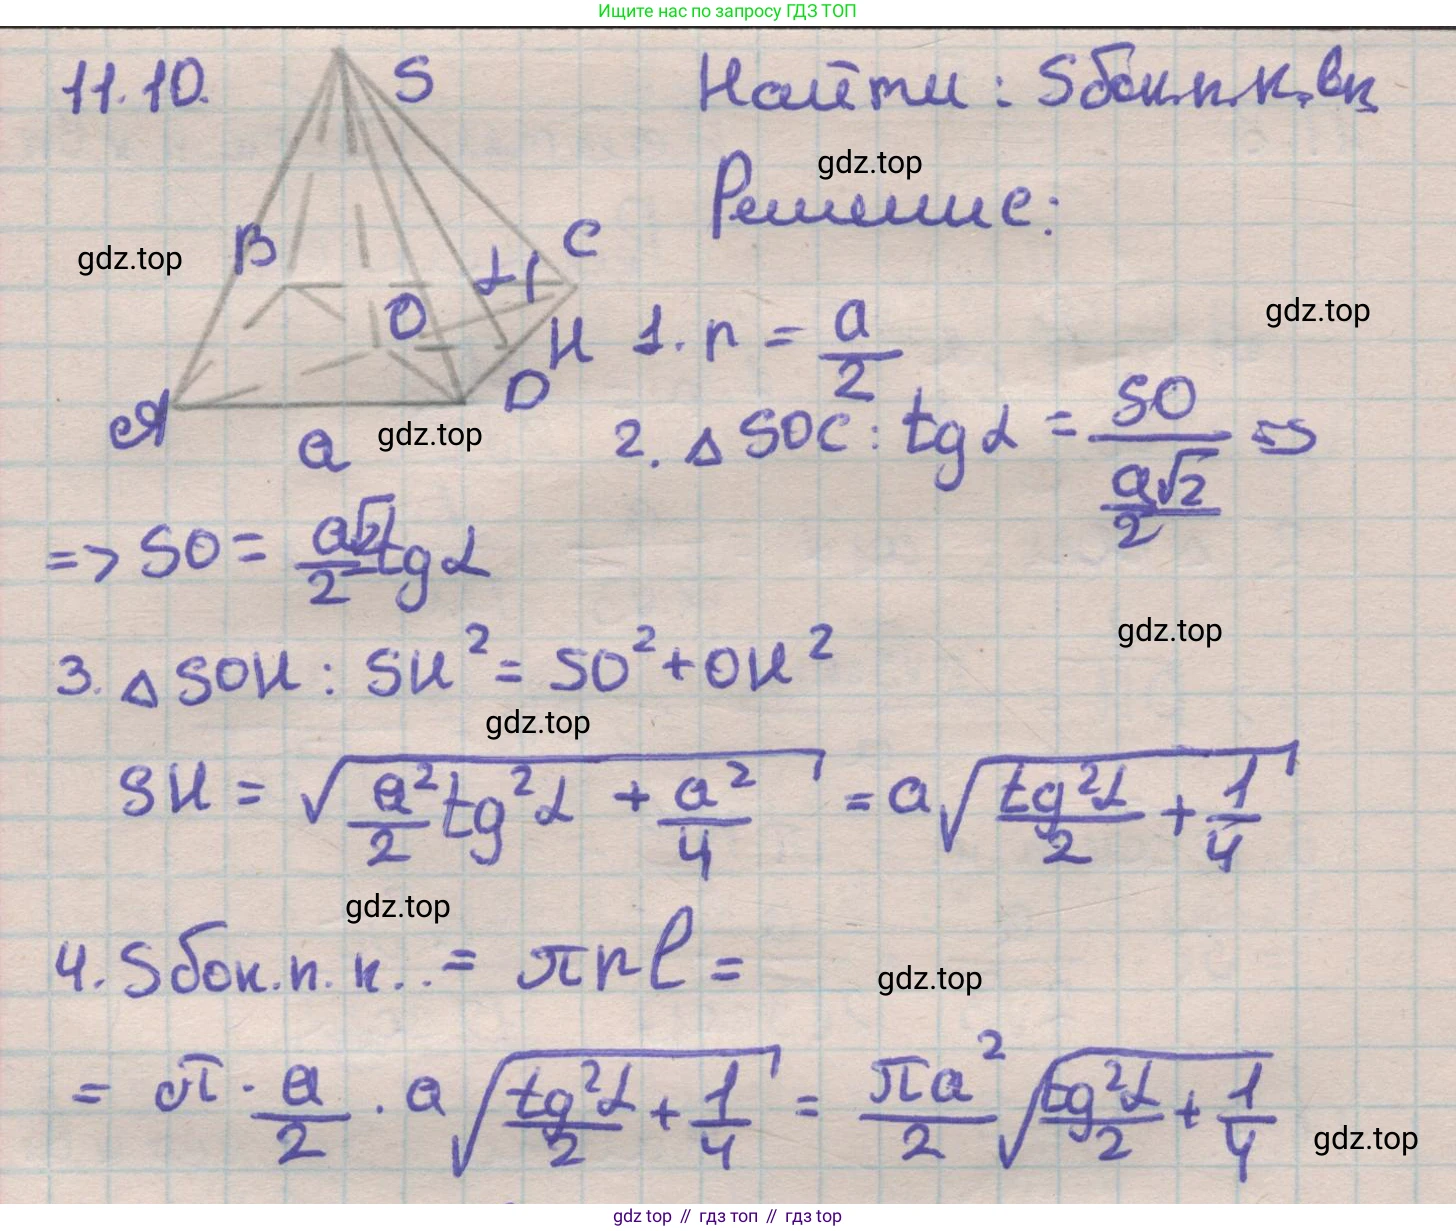 Ищите нас по запросу ГДЗ ТОП
11.10.
S
Найти: Sбок.п.к.вп.
gdz.top
Решение:
gdz.top
B
C
α
O
H
gdz.top
1. r = a/2
A
D
a
gdz.top
2. △ SOC: tg α = SO/(a√2/2) =>
=> SO = a√2/2 tg α
gdz.top
3. △ SOH: SH² = SO² + OH²
gdz.top
SH = √(a²/2 tg²α + a²/4) = a√(tg²α/2 + 1/4)
gdz.top
4. Sбок.п.к.. = πrl =
gdz.top
= π · a/2 · a√(tg²α/2 + 1/4) = πa²/2 √(tg²α/2 + 1/4)
gdz.top
gdz top // гдз топ // gdz top